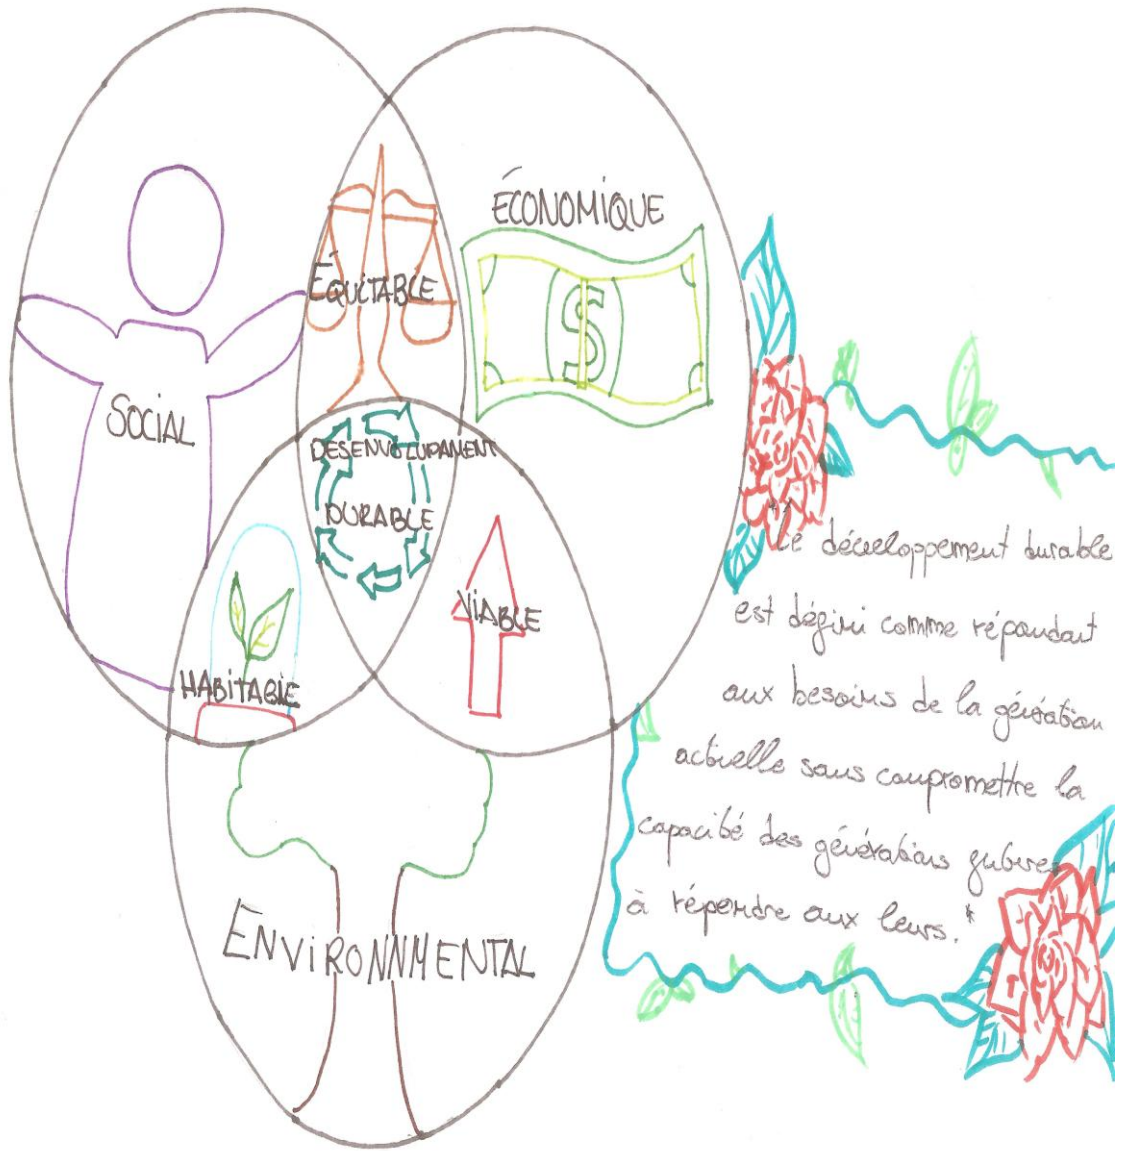 ÉCONOMIQUE
ÉQUITABLE
SOCIAL
DESENVOLUPAMENT
DURABLE
VIABLE
HABITABLE
ENVIRONNMENTAL
"Le développement durable
est défini comme répondant
aux besoins de la génération
actuelle sans compromettre la
capacité des générations futures
à répondre aux leurs."